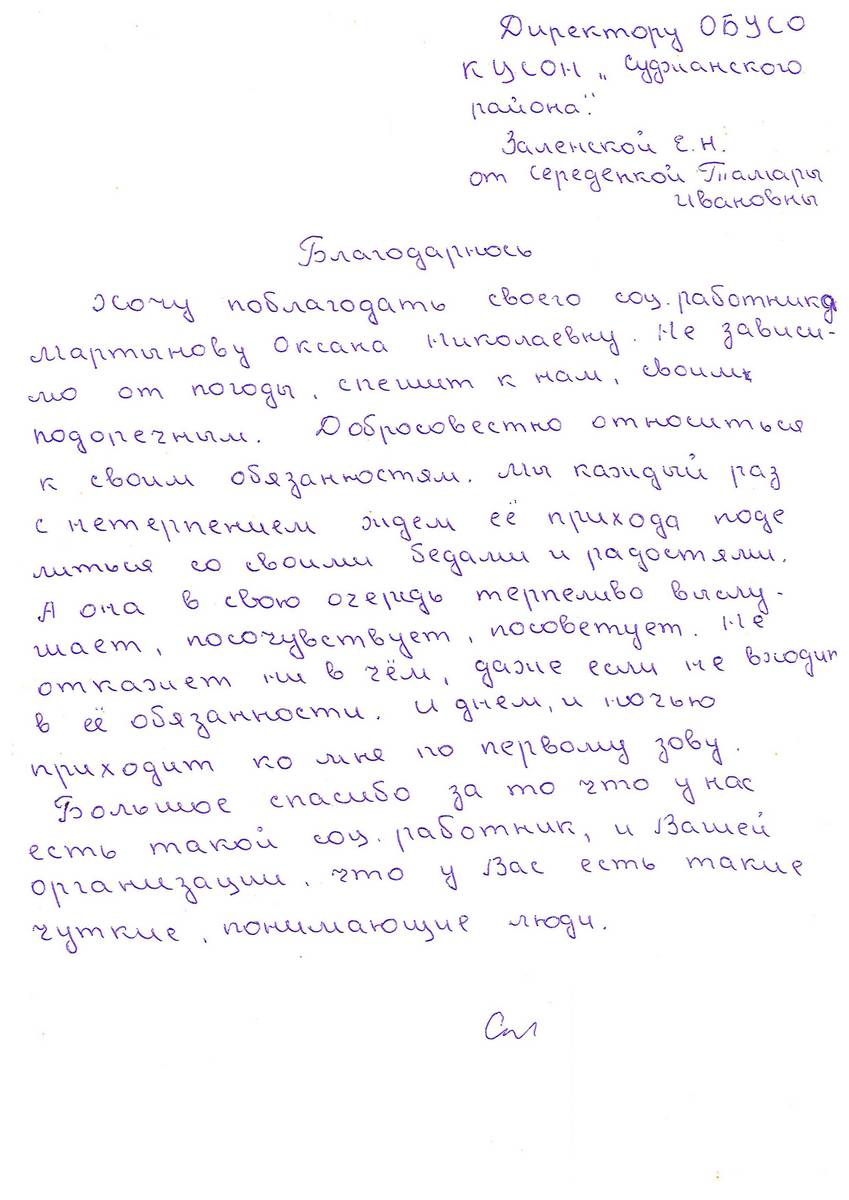 Директору ОБУСО
КЦСОН „Суджанского
района".
Заленской Е.Н.
от Середенкой Тамары
Ивановны
Благодарнось
Хочу поблагодать своего соц.работника
Мартынову Оксана Николаевну. Не зависи-
мо от погоды, спешит к нам, своим
подопечным. Добросовестно относиться
к своим обязанностям. Мы каждый раз
с нетерпением ждем её прихода поде
литься со своими бедами и радостями.
А она в свою очередь терпеливо выслу-
шает, посочувствует, посоветует. Не
откажет ни в чём, даже если не входит
в её обязанности. И днем, и ночью
приходит ко мне по первому зову.
Большое спасибо за то что у нас
есть такой соц.работник, и Вашей
организации, что у Вас есть такие
чуткие, понимающие люди.